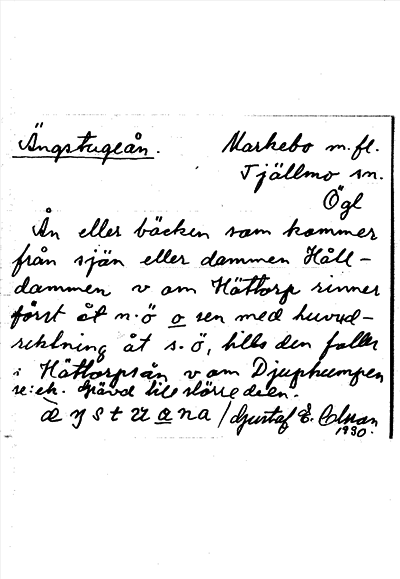 Ängstugeån.
Markebo m.fl.
Tjällmo sn.
Ögl
Ån eller bäcken som kommer
från sjön eller dammen Håll-
dammen v om Hättorp rinner
först åt n.ö o sen med huvud-
riktning åt s.ö, tills den faller
i Hättorpsån v om Djuphumpen
re:ek. Grävd till större delen.
/ Gustaf E.
1930.